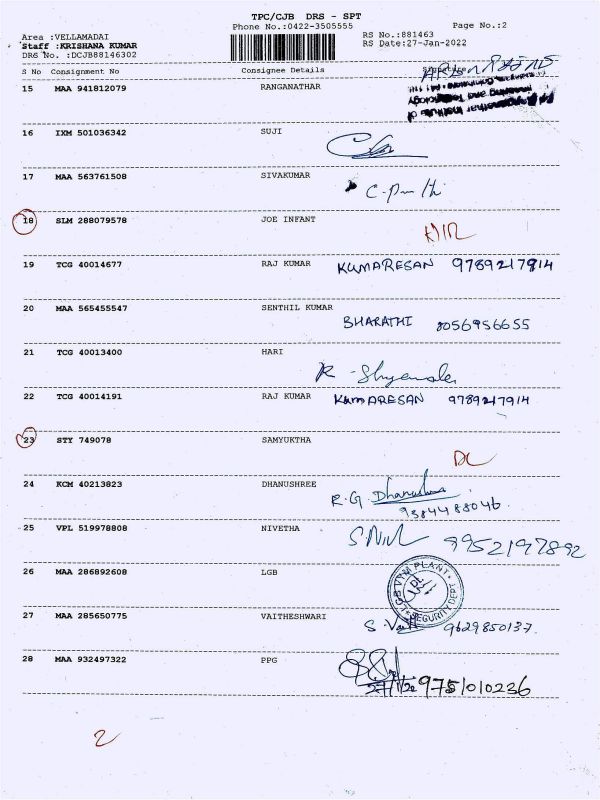 TPC/CJB DRS - SPT
Phone No.:0422-3505555 Page No.:2
Area :VELLAMADAI RS No.:881463
Staff :KRISHANA KUMAR RS Date:27-Jan-2022
DRS No. :DCJB88146302
S No Consignment No Consignee Details
15 MAA 941812079 RANGANATHAR
16 IXM 501036342 SUJI
17 MAA 563761508 SIVAKUMAR
18 SLM 288079578 JOE INFANT
19 TCG 40014677 RAJ KUMAR KUMARESAN 9789217914
20 MAA 565455547 SENTHIL KUMAR
BHARATHI 8056956655
21 TCG 40013400 HARI
22 TCG 40014191 RAJ KUMAR KUMARESAN 9789217914
23 STY 749078 SAMYUKTHA
DL
24 KCM 40213823 DHANUSHREE
R.G Dhanushree
9384488046.
25 VPL 519978808 NIVETHA 9952197892
26 MAA 286892608 LGB
SECURITY DEPT
27 MAA 285650775 VAITHESHWARI
9629850137.
28 MAA 932497322 PPG
27/1/22 9751010236
2